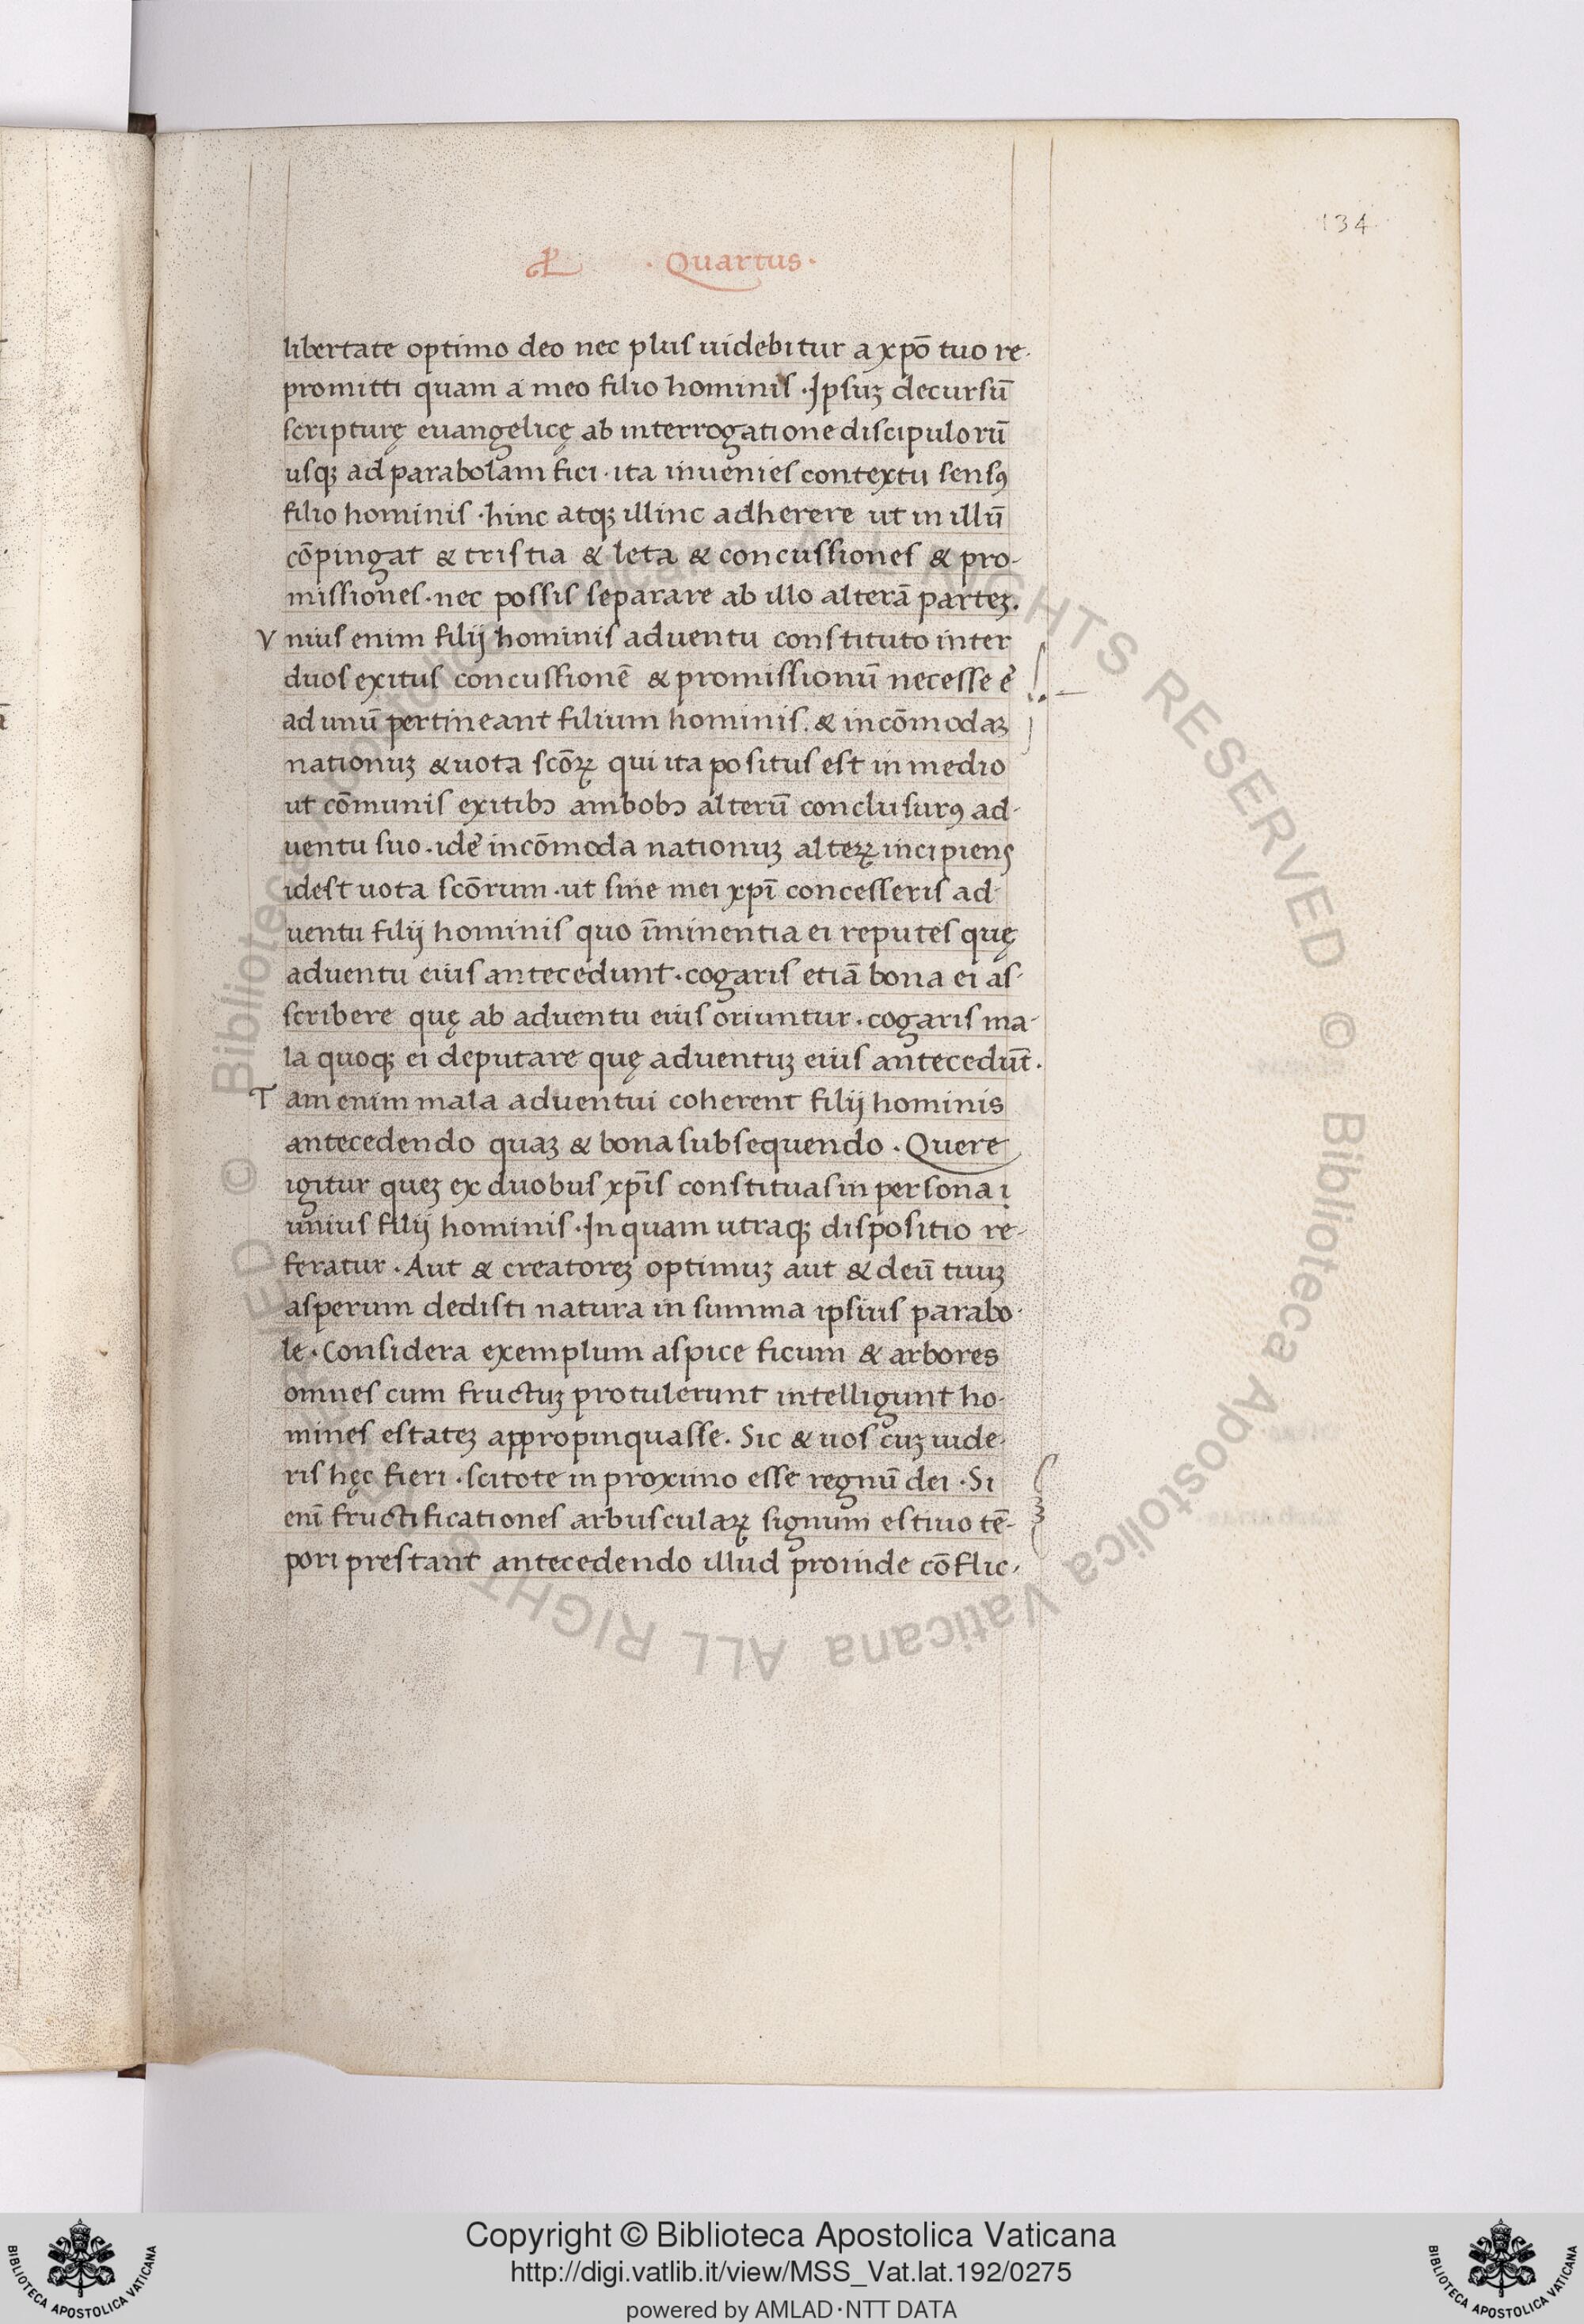 134
· Quartus ·
libertate optimo deo nec plus uidebitur a xpō tuo re-
promitti quam a meo filio hominis · Ipsuꝫ decursū
scripturę euangelicę ab interrogatione discipulorū
usqꝫ ad parabolam fici · ita inuenies contextu sensꝰ
filio hominis · hinc atqꝫ illinc adherere ut in illū
cōpingat & tristia & leta & concussiones & pro-
missiones · nec possis separare ab illo alterā parteꝫ.
Vnius enim filij hominis aduentu constituto inter
duos exitus concussionē & promissionū necesse ē
ad unū pertineant filium hominis. & incōmodaꝫ
nationuꝫ & uota scōꝝ qui ita positus est in medio
ut cōmunis exitibꝫ ambobꝫ alterū conclusurꝰ ad-
uentu suo · idē incōmoda nationuꝫ alteꝝ incipiens
idest uota scōrum · ut siue mei xpī concesseris ad-
uentu filij hominis quo īminentia ei reputes quę
aduentu eius antecedunt · cogaris etiā bona ei as-
scribere quę ab aduentu eius oriuntur · cogaris ma-
la quoqꝫ ei deputare quę aduentuꝫ eius antecedūt.
Tam enim mala aduentui coherent filij hominis
antecedendo quaꝫ & bona subsequendo · Quere
igitur queꝫ ex duobus xpīs constituas in persona i
unius filij hominis · In quam utraqꝫ dispositio re-
feratur · Aut & creatoreꝫ optimuꝫ aut & deū tuuꝫ
asperum dedisti natura in summa ipsius parabo-
le · Considera exemplum aspice ficum & arbores
omnes cum fructuꝫ protulerunt intelligunt ho-
mines estateꝫ appropinquasse. Sic & uos cuꝫ uide-
ris hęc fieri · scitote in proximo esse regnū dei · Si
enī fructificationes arbusculaꝝ signum estiuo tē-
pori prestant antecedendo illud proinde cōflic-
Copyright © Biblioteca Apostolica Vaticana
http://digi.vatlib.it/view/MSS_Vat.lat.192/0275
powered by AMLAD·NTT DATA
BIBLIOTECA APOSTOLICA VATICANA
BIBLIOTECA APOSTOLICA VATICANA
© Biblioteca Apostolica Vaticana ALL RIGHTS RESERVED © Biblioteca Apostolica Vaticana ALL RIGHTS RESERVED